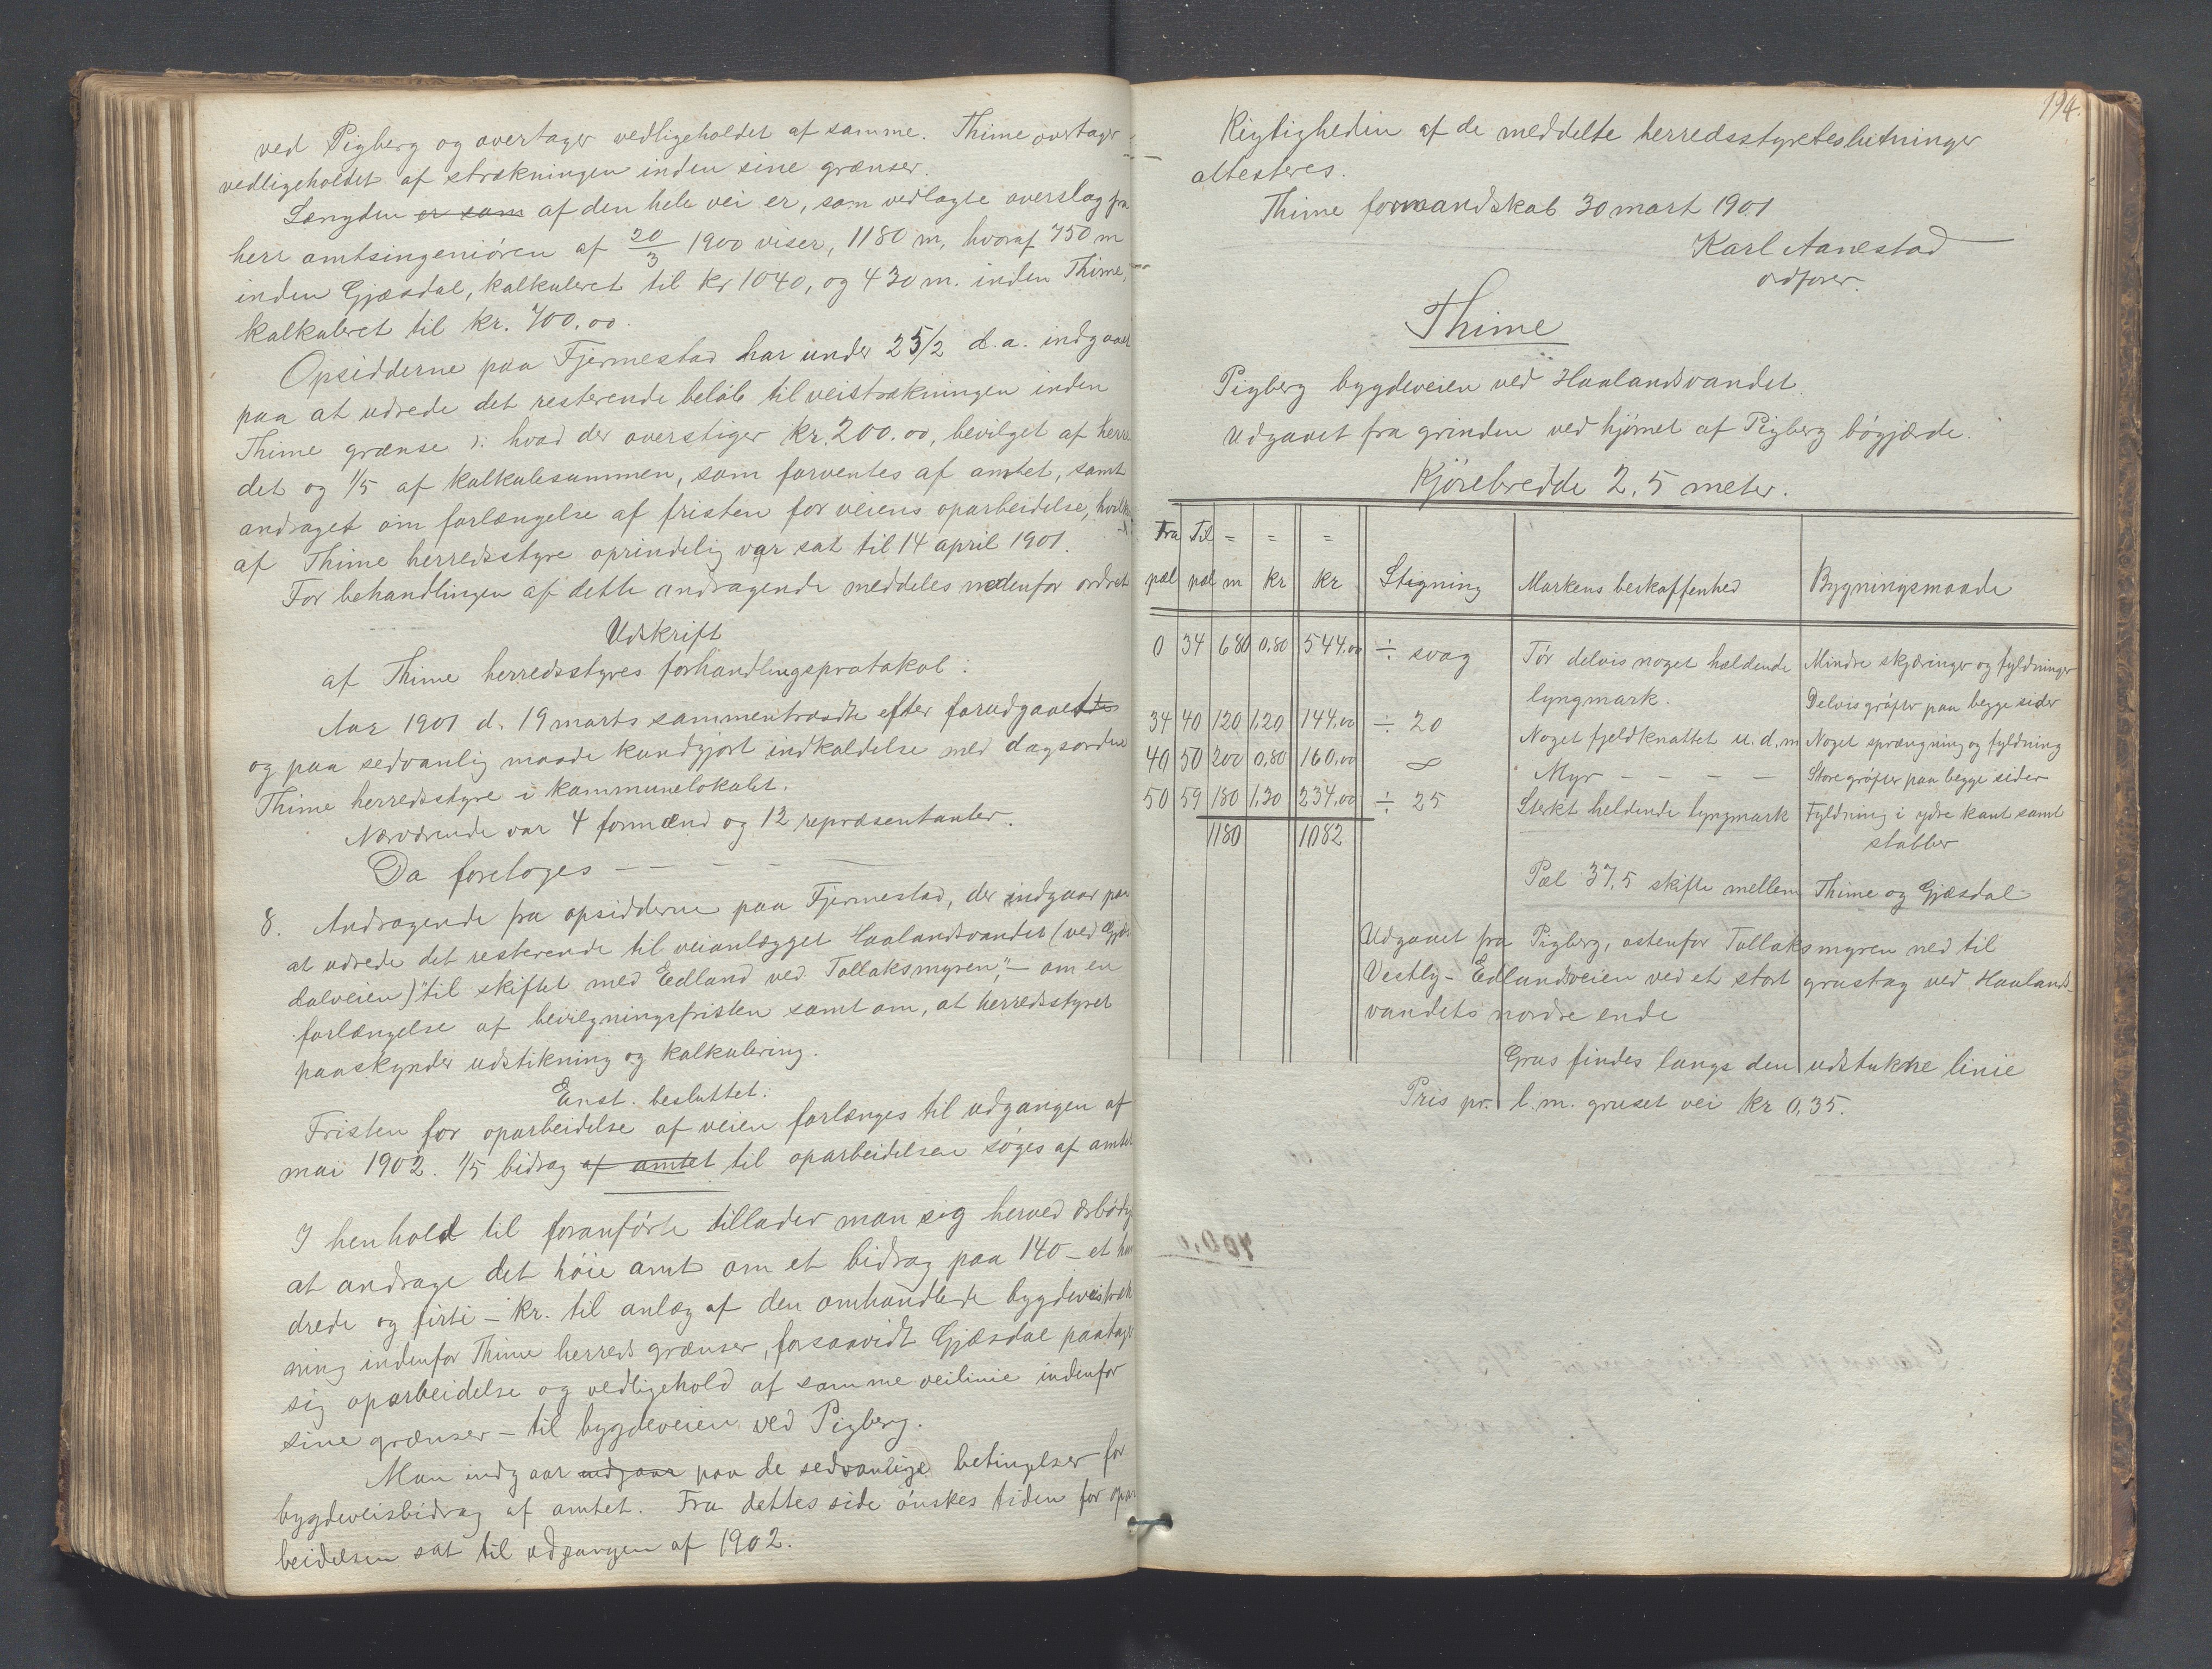 ved Pigberg og overtager vedligeholdet af samme. Thime overtager
vedligeholdet af strækningen inden sine grænser.
Længden er som af den hele vei er, som vedlagte overslag fra
herr amtsingeniören af 20/3 1900 viser, 1180 m, hvoraf 750 m
inden Gjæsdal, kalkuleret til kr 1040, og 430 m. inden Thime,
kalkuleret til kr. 700.00.
Opsidderne paa Fjermestad har under 25/2 d.a. indgaaet
paa at udrede det resterende beløb til veistrækningen inden
Thime grænse ɔ: hvad der overstiger kr. 200.00, bevilget af herre
det og 1/5 af kalkulesummen, som forventes af amtet, samt
andraget om forlængelse af fristen for veiens oparbeidelse,
af Thime herredsstyre oprindelig var sat til 14 april 1901.
For behandlingen af dette andragende meddeles nedenfor ordret
Udskrift
af Thime herredsstyres forhandlingsprotokol:
Aar 1901 d. 19 marts sammentraadte efter forudgaaet
og paa sedvanlig maade kundgjort indkaldelse med dagsorden
Thime herredsstyre i kommunelokalet.
Nærværende var 4 formænd og 12 repræsentanter.
Da foretoges — — —
8. Andragende fra opsidderne paa Fjermestad, der indgaar paa
at udrede det resterende til veianlægget Haalandsvandet (ved Gjæs-
dalveien)" til skiftet med Edland ved Tollaksmyren," — om en
forlængelse af bevilgningsfristen samt om, at herredsstyret
paaskynder udstikning og kalkulering.
Enst. besluttet:
Fristen for oparbeidelse af veien forlænges til udgangen af
mai 1902. 1/5 bidrag af amtet til oparbeidelsen søges af amtet
I henhold til foranførte tillader man sig herved ærbødig
at andrage det höie amt om et bidrag paa 140 – et hun
drede og firti – kr. til anlæg af den omhandlede bygdeveistræk
ning indenfor Thime herreds grænser, forsaavidt Gjæsdal paatager
sig oparbeidelse og vedligehold af samme veilinie indenfor
sine grænser – til bygdeveien ved Pigberg.
Man indgaar udgaar paa de sedvanlige betingelser for
bygdeveisbidrag af amtet. Fra dettes side ønskes tiden for opar
beidelsen sat til udgangen af 1902.
194.
Rigtigheden af de meddelte herredsstyrebeslutninger
attesteres.
Thime formandskab 30 mart 1901
Karl Aanestad
ordfører.
Thime
Pigberg bygdeveien ved Haalandsvandet.
Udgaaet fra grinden ved hjørnet af Pigberg bøgjærde.
Kjørebredde 2,5 meter.
Fra Til = = =
pæl pæl m kr kr Stigning Markens beskaffenhed Bygningsmaade
0 34 680 0,80 544,00 ÷ svag Tør delvis noget heldende Mindre skjæringer og fyldninger
lyngmark. Delvis grøfter paa begge sider
34 40 120 1,20 144,00 ÷ 20 Noget fjeldknattet u.d.m Noget sprængning og fyldning
40 50 200 0,80 160,00 ∞ Myr – – – – Store grøfter paa begge sider
50 59 180 1,30 234,00 ÷ 25 Sterkt heldende lyngmark Fyldning i ydre kant samt
1180 1082 stabber
Pæl 37,5 skifte mellem Thime og Gjæsdal
Udgaaet fra Pigberg, østenfor Tollaksmyren ned til
Vestly- Edlandsveien ved et stort grustag ved Haalands-
vandets nordre ende
Grus findes langs den udstukne linie
Pris pr. l.m. gruset vei kr 0,35.